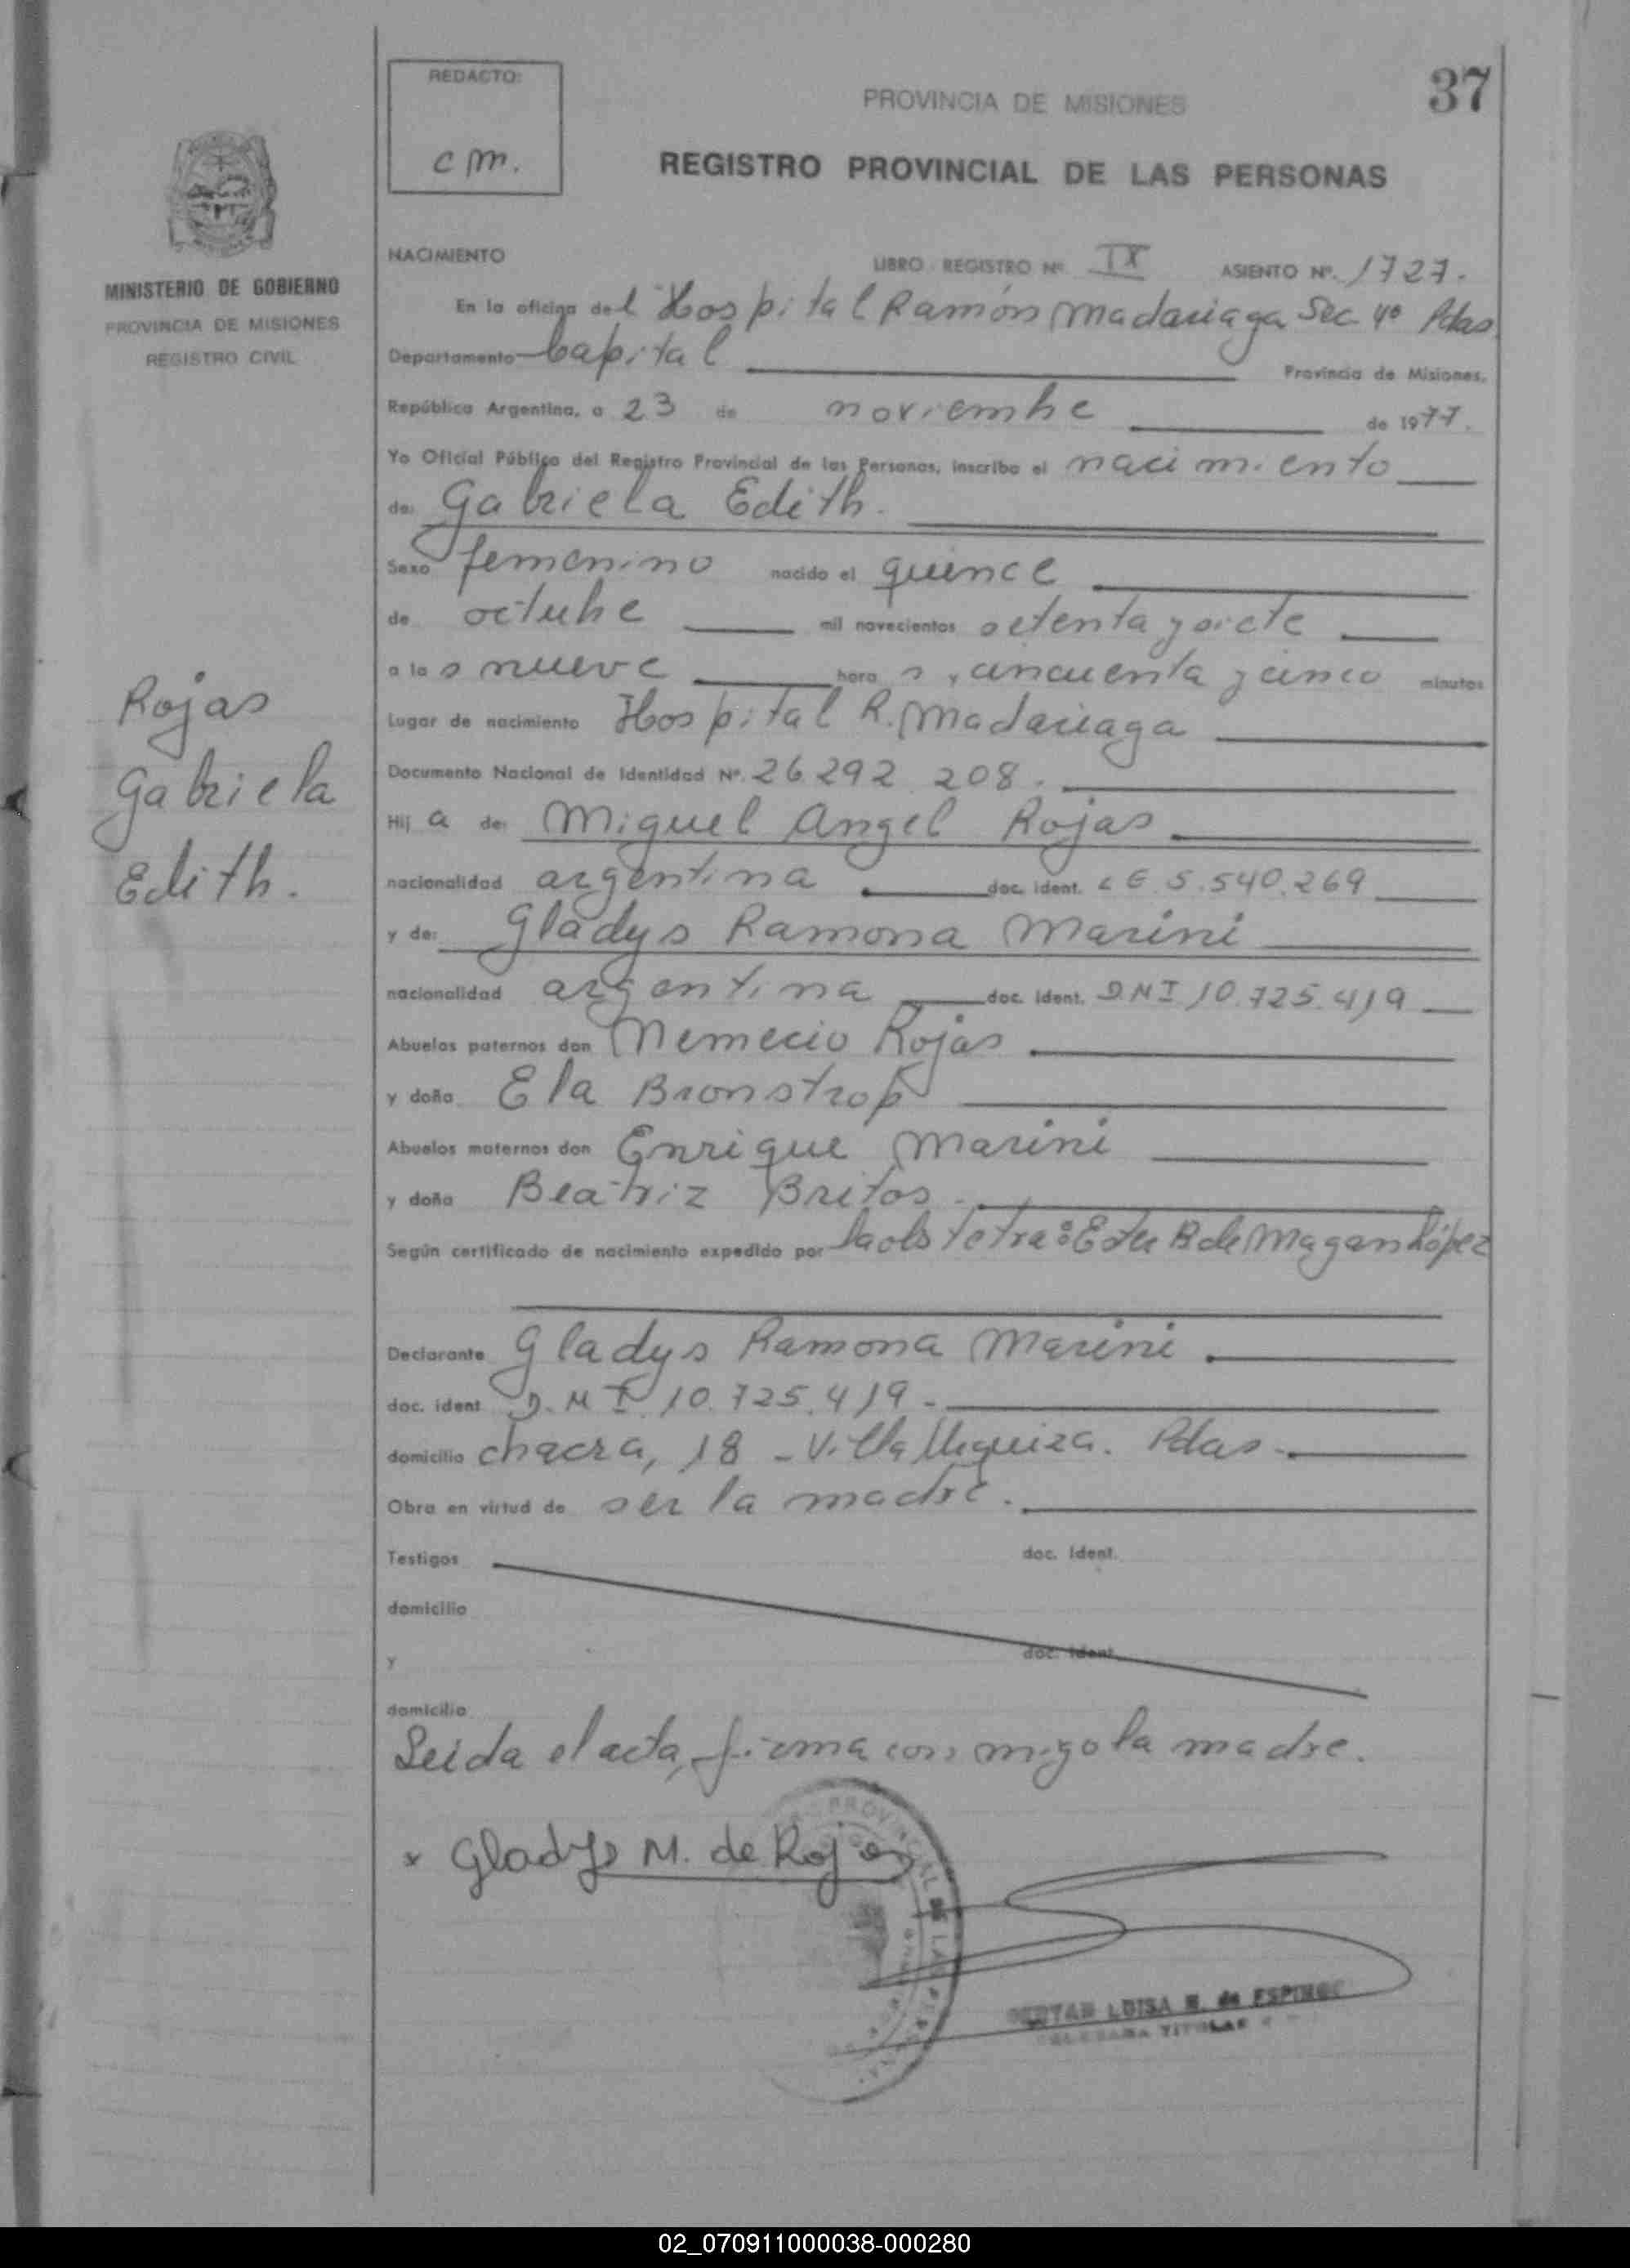 REDACTO:
c m.
PROVINCIA DE MISIONES
37
REGISTRO PROVINCIAL DE LAS PERSONAS
MINISTERIO DE GOBIERNO
PROVINCIA DE MISIONES
REGISTRO CIVIL
NACIMIENTO LIBRO REGISTRO Nº IX ASIENTO Nº. 1727.
En la oficina del Hospital Ramón Madariaga Sec 4º Pdas.
Departamento Capital Provincia de Misiones.
República Argentina, a 23 de noviembre de 1977.
Yo Oficial Público del Registro Provincial de las Personas, inscribo el nacimiento
de: Gabriela Edith.
Sexo femenino nacido el quince
de octubre mil novecientos setenta y siete
a las nueve horas, cincuenta y cinco minutos
Lugar de nacimiento Hospital R. Madariaga
Documento Nacional de Identidad Nº. 26.292.208.
Hija de: Miguel Angel Rojas
nacionalidad argentina doc. ident. L E 5.540.269
y de: Gladys Ramona Marini
nacionalidad argentina doc. ident. D.N I 10.725.419
Abuelos paternos don Nemecio Rojas
y doña Ela Bronstrop
Abuelos maternos don Enrique Marini
y doña Beatriz Britos.
Según certificado de nacimiento expedido por la obstetra: Ester B de Magan López
Declarante Gladys Ramona Marini.
doc. ident. D. N I. 10.725.419.-
domicilio chacra, 18 - Villa Urquiza. Pdas.
Obra en virtud de ser la madre.
Testigos doc. ident.
domicilio
y doc. ident.
domicilio
Leida el acta, firma conmigo la madre.
x Gladys M. de Rojas
LUISA de
TITULAR
Rojas
Gabriela
Edith.
02_070911000038-000280